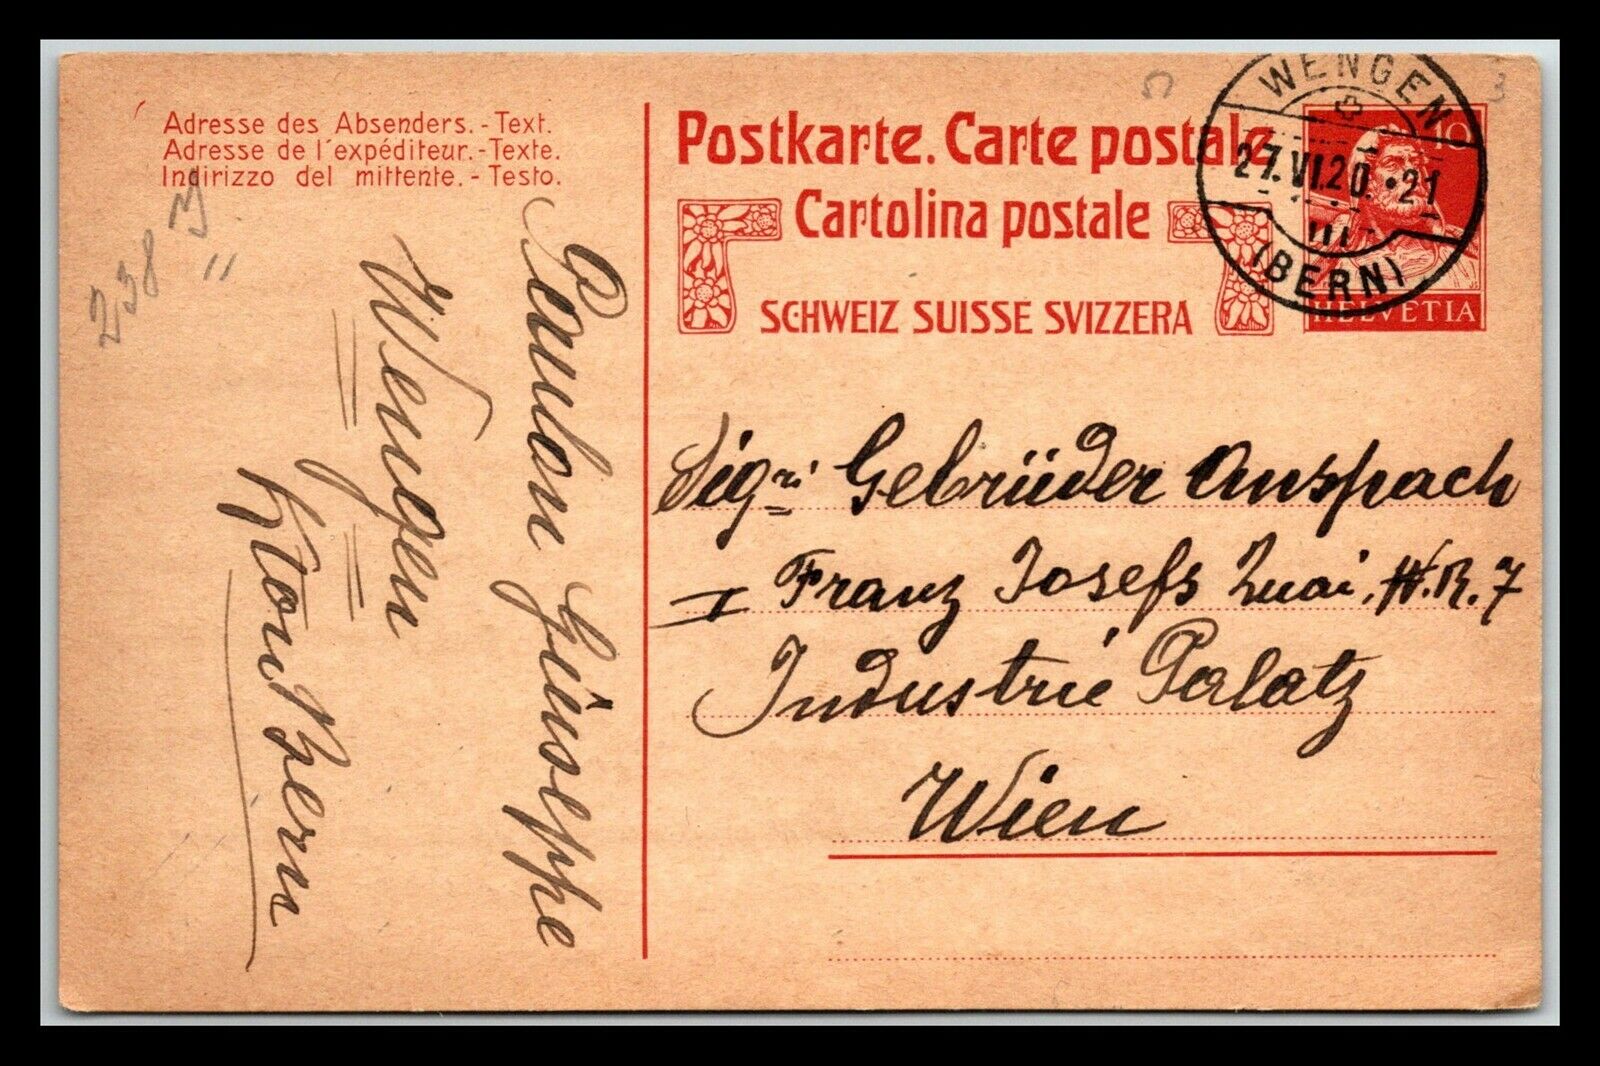 Adresse des Absenders.-Text.
Adresse de l'expéditeur.-Texte.
Indirizzo del mittente.-Testo.
238
Giuseppe
Wengen
Kton Bern
Postkarte. Carte postale
Cartolina postale
SCHWEIZ SUISSE SVIZZERA
WENGEN
27.VI.20.•21
(BERN)
10
HELVETIA
Sigri Gebrüder Anspach
I Franz Josefs Quai, N.R. 7
Industrie Palatz
Wien